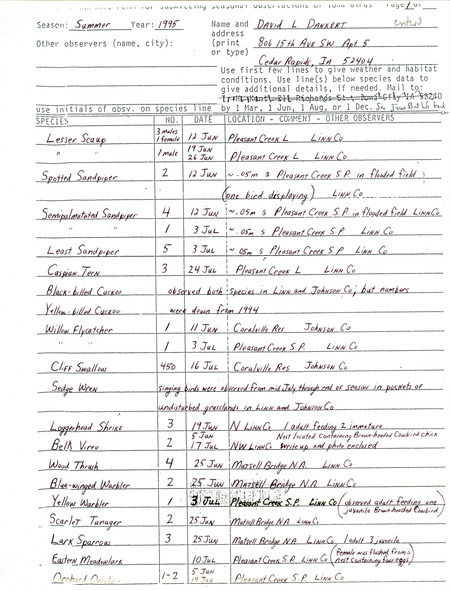 form for submitting seasonal observations of Iowa birds Page 1 of
Season: Summer Year: 1995 Name and David L Dankert
address 806 15th Ave SW Apt 5
Other observers (name, city): (print
or type) Cedar Rapids, IA 52404
Use first few lines to give weather and habitat
conditions. Use line(s) below species data to
give additional details, if needed. Mail to:
use initials of obsv. on species line by 1 Mar, 1 Jun, 1 Aug, or 1 Dec.
SPECIES NO. DATE LOCATION - COMMENT - OTHER OBSERVERS
Lesser Scaup 3 males 1 female 12 Jun Pleasant Creek L Linn Co
" " 1 male 19 Jun 26 Jun Pleasant Creek L Linn Co
Spotted Sandpiper 2 12 Jun ~.05m S Pleasant Creek S.P. in flooded field
(one bird displaying) Linn Co
Semipalmated Sandpiper 4 12 Jun ~.05m S Pleasant Creek S.P. in flooded field Linn Co
" " 1 3 Jul ~.05m S Pleasant Creek S.P. Linn Co
Least Sandpiper 5 3 Jul ~.05m S Pleasant Creek S.P. Linn Co
Caspian Tern 3 24 Jul Pleasant Creek L Linn Co
Black-billed Cuckoo observed both species in Linn and Johnson Co; but numbers
Yellow-billed Cuckoo were down from 1994
Willow Flycatcher 1 11 Jun Coralville Res Johnson Co
1 3 Jul Pleasant Creek S.P. Linn Co
Cliff Swallow 450 16 Jul Coralville Res Johnson Co
Sedge Wren singing birds were observed from mid July through end of season in pockets of
undisturbed grasslands in Linn and Johnson Co
Loggerhead Shrike 3 19 Jun N Linn Co 1 adult feeding 2 immature
5 Jun Nest located containing Brown-headed Cowbird chick
Bell's Vireo 2 17 Jul NW Linn Co Write up and photo enclosed
Wood Thrush 4 25 Jun Matsell Bridge N.A. Linn Co
Blue-winged Warbler 2 25 Jun Matsell Bridge N.A. Linn Co
Yellow Warbler 1 3 Jul Pleasant Creek S.P. Linn Co (observed adult feeding one
juvenile Brown-headed Cowbird)
Scarlet Tanager 2 25 Jun Matsell Bridge N.A. Linn Co
Lark Sparrow 3 25 Jun Matsell Bridge N.A. Linn Co 1 adult 3 juvenile
Eastern Meadowlark 10 Jul Pleasant Creek S.P. Linn Co (female was flushed from a
nest containing four eggs)
Orchard Oriole 1-2 5 Jun 19 Jun Pleasant Creek S.P. Linn Co